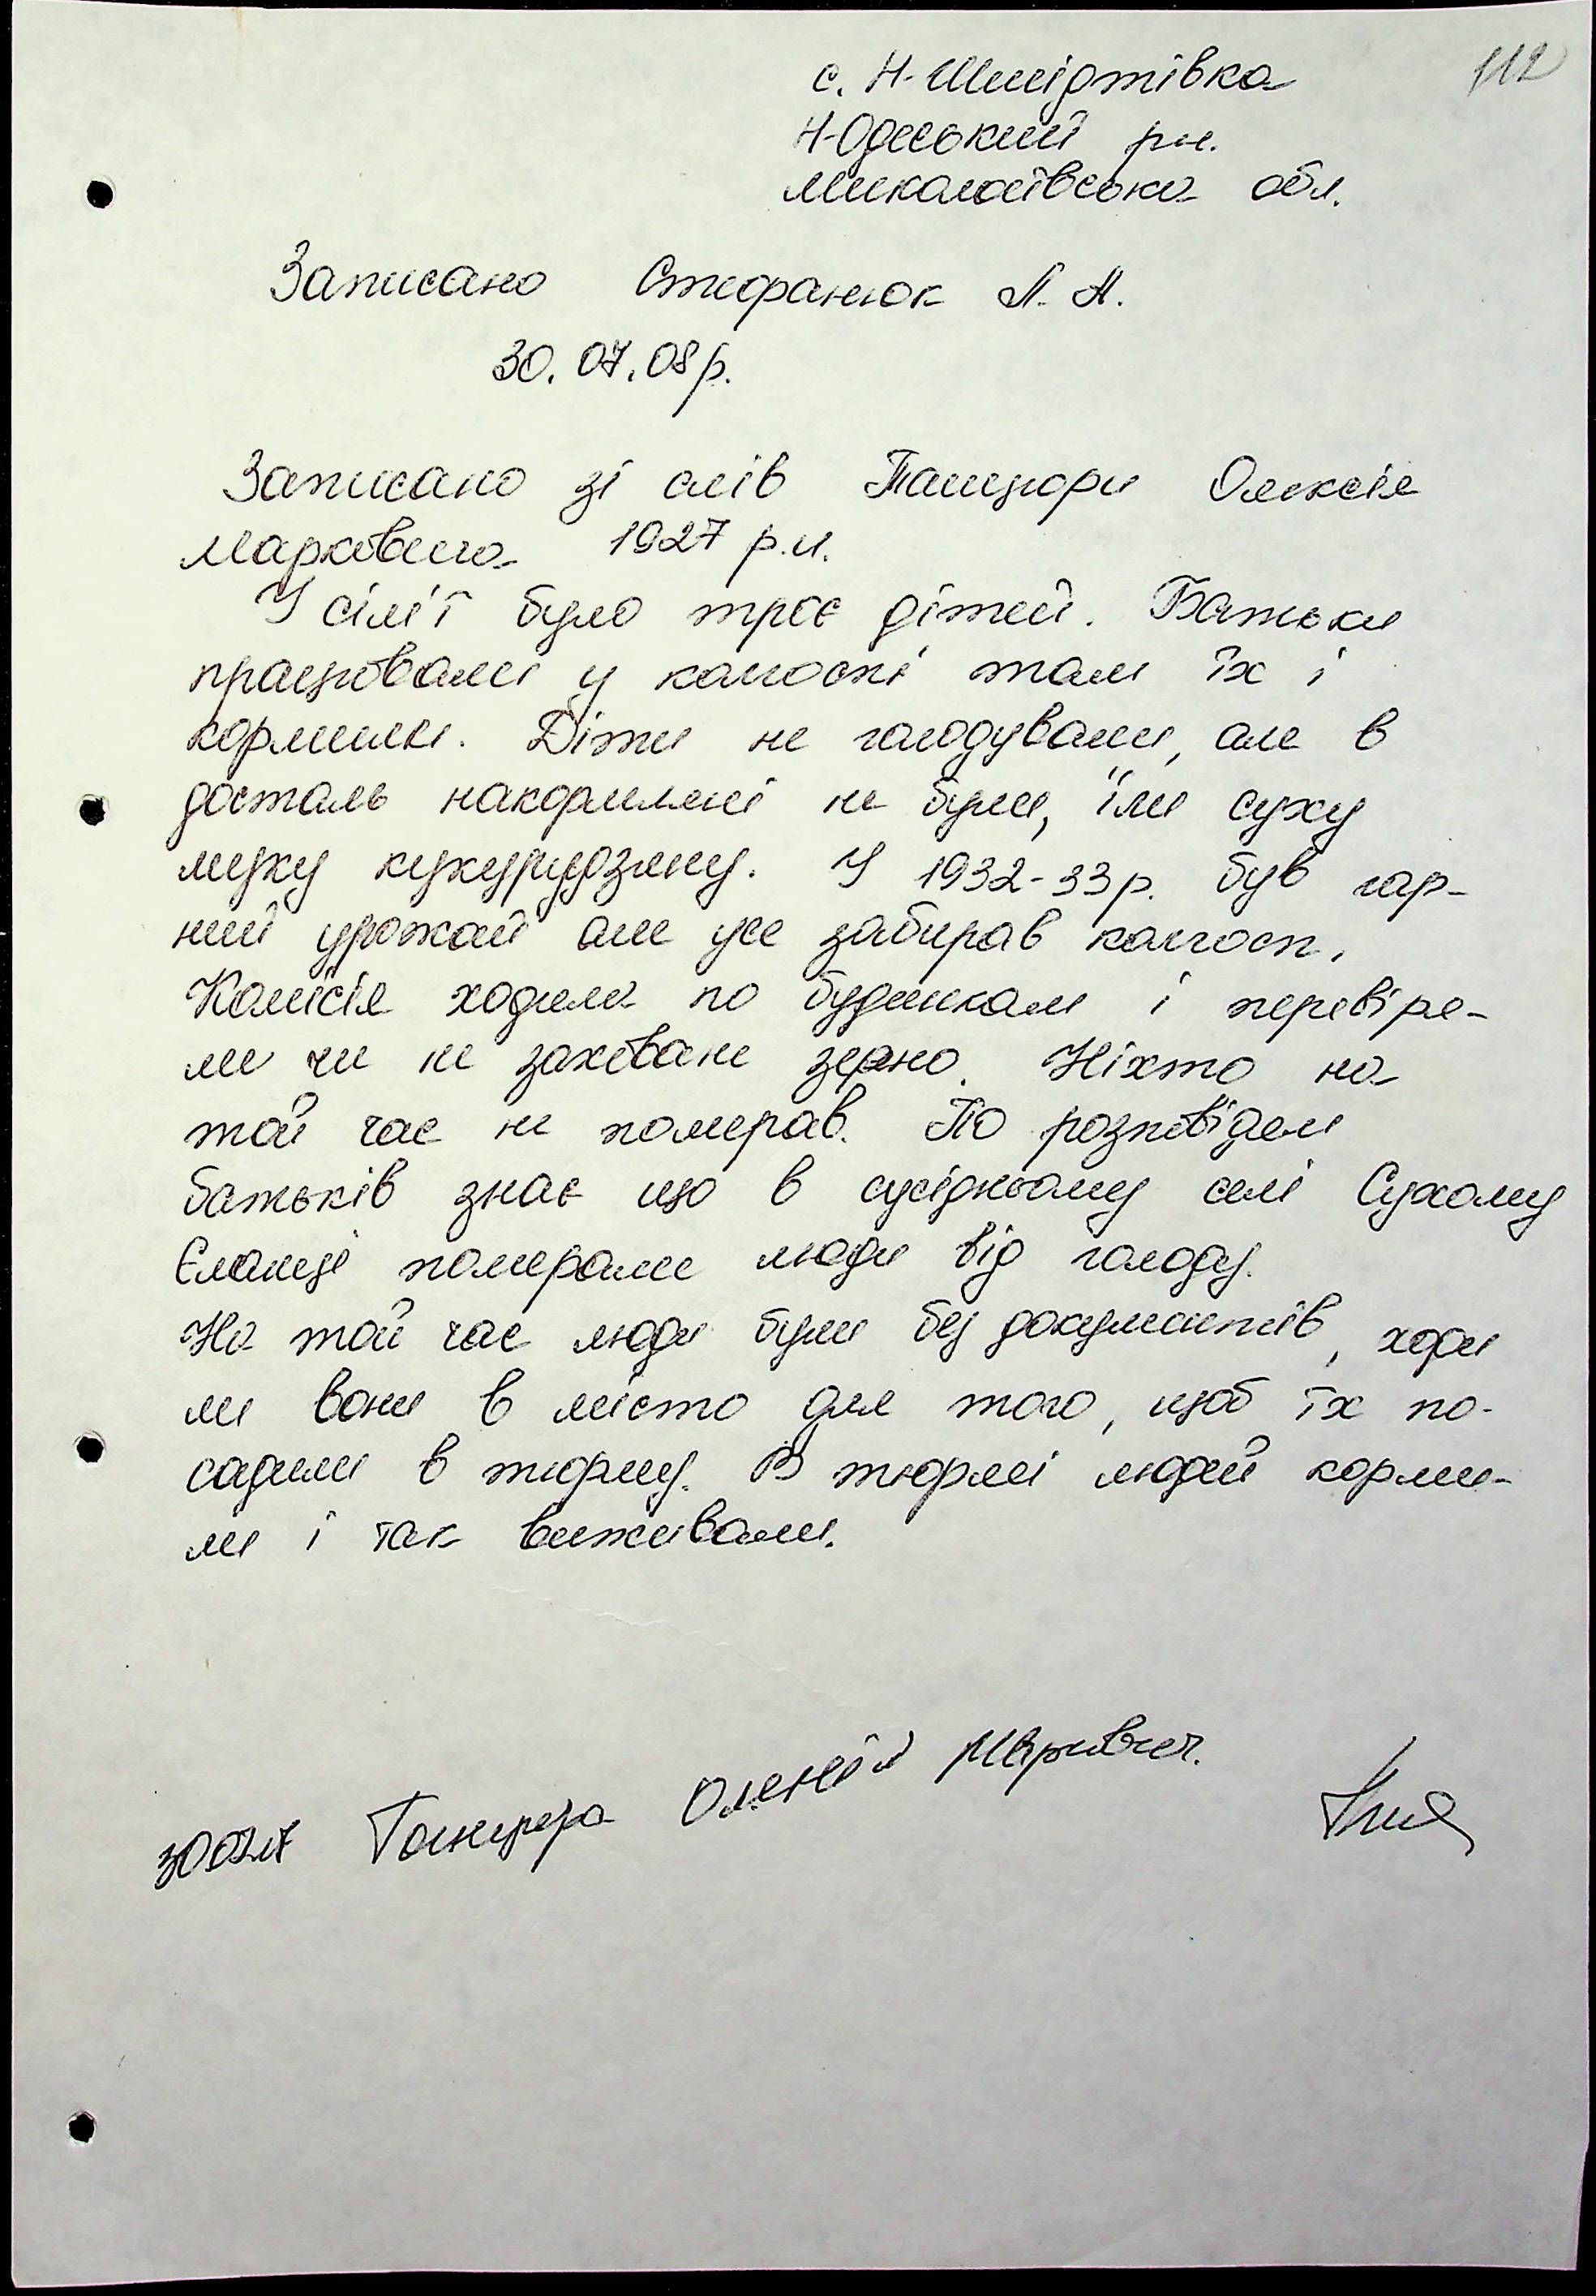 112
с. Н-Шмідтівка
Н-Одеський рн.
Миколаївська обл.
Записано Стефанюк Л. А.
30.07.08р.
Записано зі слів Танцюри Олексія
Марковича 1927 р.н.
У сім'ї було троє дітей. Батьки
працювали у колгоспі там їх і
кормили. Діти не голодували, але в
досталь накормлені не були, їли суху
муку кукурудзяну. У 1932-33р. був гар-
ний урожай але усе забирав колгосп.
Комісія ходила по будинкам і перевіря-
ли чи не заховане зерно. Ніхто на
той час не помирав. По розповідям
батьків знає що в сусідньому селі Сухому
Єланці помирали люди від голоду.
На той час люди були без документів, ходи
ли вони в місто для того, щоб їх по-
садили в тюрму. В тюрмі людей корми-
ли і так виживали.
Танцюра Олексій Маркович.